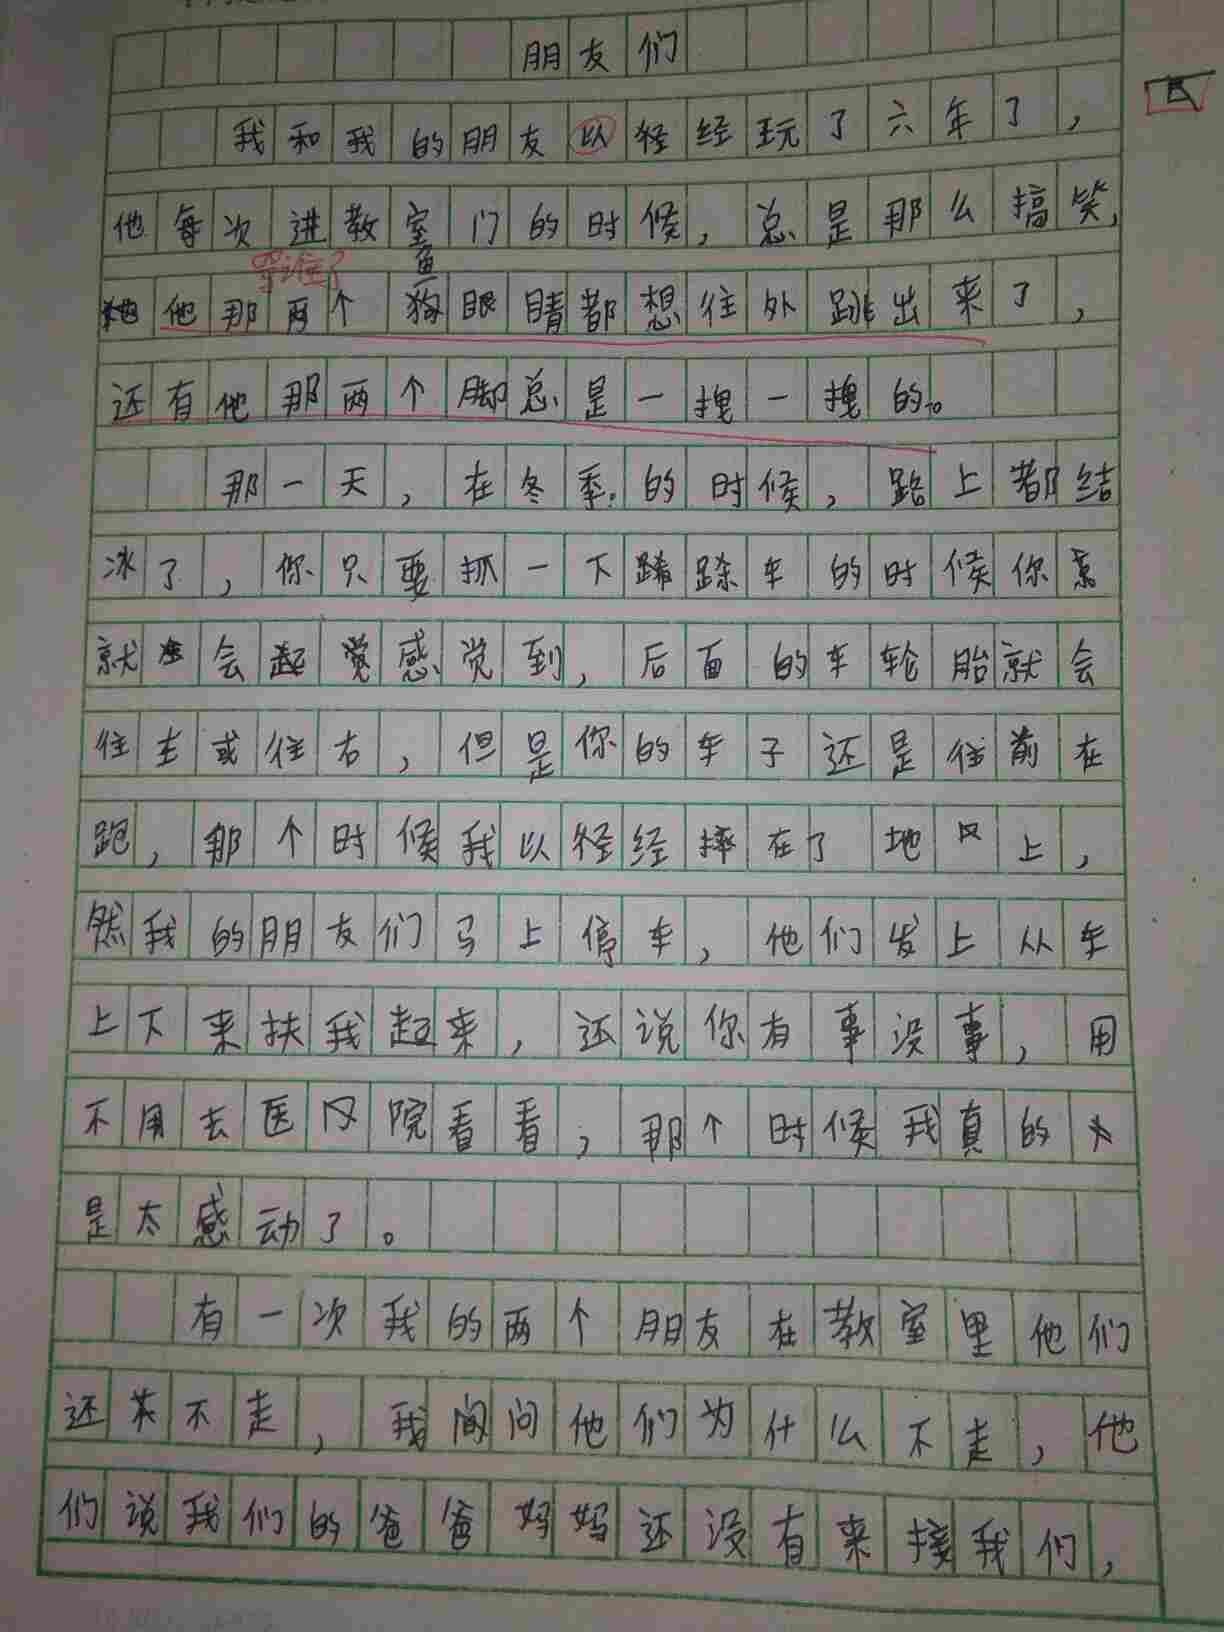 朋友们
我和我的朋友以径经玩了六年了，
他每次进教室门的时候，总是那么搞笑，
写谁了
鱼
他那两个狗眼睛都想往外跳出来了，
还有他那两个脚总是一拽一拽的。
那一天，在冬季的时候，路上都结
冰了，你只要抓一下踩车的时候你
就会起觉感觉到，后面的车轮胎就会
往左或往右，但是你的车子还是往前在
跑，那个时候我以径经摔在了地上，
然我的朋友们马上停车，他们发上从车
上下来扶我起来，还说你有事没事，用
不用去医院看看，那个时候我真的
是太感动了。
有一次我的两个朋友在教室里他们
还不走，我问他们为什么不走，他
们说我们的爸爸妈妈还没有来接我们，